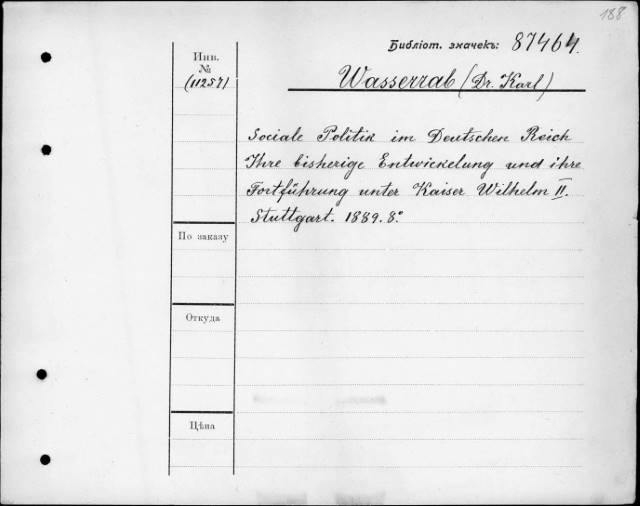 188
Библіот. значекъ: 87464.
Инв.
№
(11257)
Wasserrab (Dr. Karl)
Sociale Politik im Deutschen Reich
Ihre bisherige Entwickelung und ihre
Fortführung unter Kaiser Wilhelm II.
Stuttgart. 1889. 8.°
По заказу
Откуда
Цѣна